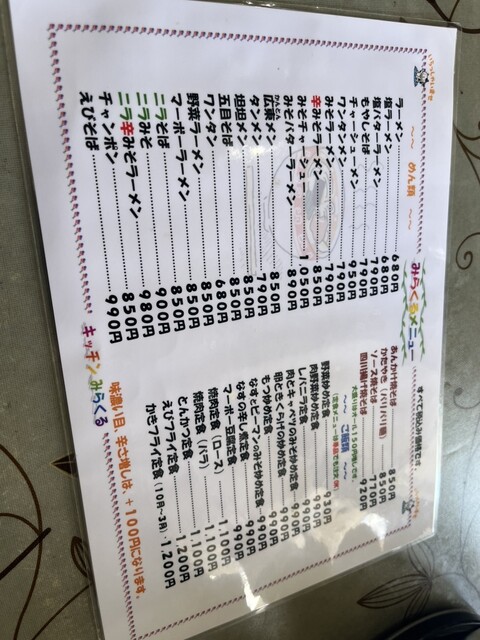 いらっしゃいませ
みらくるメニュー
すべて税込み価格です。
～～ めん類 ～～
ラーメン 680円
塩ラーメン 680円
塩バターラーメン 790円
もやしそば 790円
チャーシューメン 950円
ワンタンメン 790円
みそラーメン 790円
辛みそラーメン 850円
みそチャーシューメン 1,050円
みそバターラーメン 890円
広東メン 850円
タンメン 790円
坦坦メン 850円
五目そば 850円
ワンタン 680円
野菜ラーメン 850円
マーボーラーメン 850円
ニラそば 850円
ニラみそ 900円
ニラ辛みそラーメン 980円
チャンポン 850円
えびそば 990円
あんかけ焼そば 850円
かたやき（パリパリ麺） 850円
ソース焼そば 770円
四川揚げ焼そば 920円
大盛りはオール150円増しです。
～～ ご飯類 ～～
野菜炒め定食 930円
肉野菜炒め定食 990円
レバニラ定食 990円
肉とキャベツのみそ炒め定食 990円
卵ときくらげの炒め定食 990円
もつ炒め定食 990円
なすとピーマンのみそ炒め定食 990円
なすの辛し煮定食 990円
マーボー豆腐定食 990円
焼肉定食（ロース） 1,100円
焼肉定食（バラ） 1,100円
とんかつ定食 1,100円
えびフライ定食 1,200円
かきフライ定食（10月～3月） 1,200円
味濃い目、辛さ増しは、＋100円になります。
キッチンみらくる